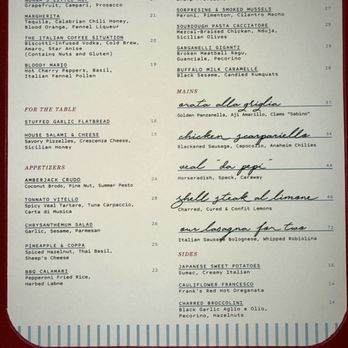 Grapefruit, Campari, Prosecco
MARGHERITA 21
Tequila, Calabrian Chili Honey,
Blood Orange, Fennel Liqueur
THE ITALIAN COFFEE SITUATION 20
Biscotti-Infused Vodka, Cold Brew,
Amaro, Star Anise
(Contains Nuts and Gluten)
BLOODY MARIO 19
Hot Cherry Peppers, Basil,
Italian Fennel Pollen
FOR THE TABLE
STUFFED GARLIC FLATBREAD 16
HOUSE SALAMI & CHEESE 25
Savory Pizzelles, Crescenza Cheese,
Sicilian Honey
APPETIZERS
AMBERJACK CRUDO 24
Coconut Brodo, Pine Nut, Summer Pesto
TONNATO VITELLO 28
Spicy Veal Tartare, Tuna Carpaccio,
Carta di Musica
CHRYSANTHEMUM SALAD 26
Garlic, Sesame, Parmesan
PINEAPPLE & COPPA 25
Spiced Hazelnut, Thai Basil,
Sheep's Cheese
BBQ CALAMARI 22
Pepperoni Fried Rice,
Herbed Labne
SORPRESINE & SMOKED MUSSELS
Peroni, Pimenton, Cilantro Macho
SOURDOUGH PASTA CACCIATORE
Mezcal-Braised Chicken, Nduja,
Sicilian Olives
GARGANELLI GIGANTI
Broken Meatball Ragu,
Guanciale, Pecorino
BUFFALO MILK CARAMELLE
Black Sesame, Candied Kumquats
MAINS
orata alla griglia
Golden Panzanella, Aji Amarillo, Clams "Sabino"
chicken scarpariello
Blackened Sausage, Capocollo, Anaheim Chilies
veal "da pepi"
Horseradish, Speck, Caraway
shell steak al limone
Charred, Cured & Confit Lemons
our lasagna for two 72
Italian Sausage Bolognese, Whipped Robiolina
SIDES
JAPANESE SWEET POTATOES 16
Sumac, Creamy Italian
CAULIFLOWER FRANCESCO 14
Frank's Red Hot Oreganata
CHARRED BROCCOLINI 14
Black Garlic Aglio e Olio,
Pecorino, Hazelnuts